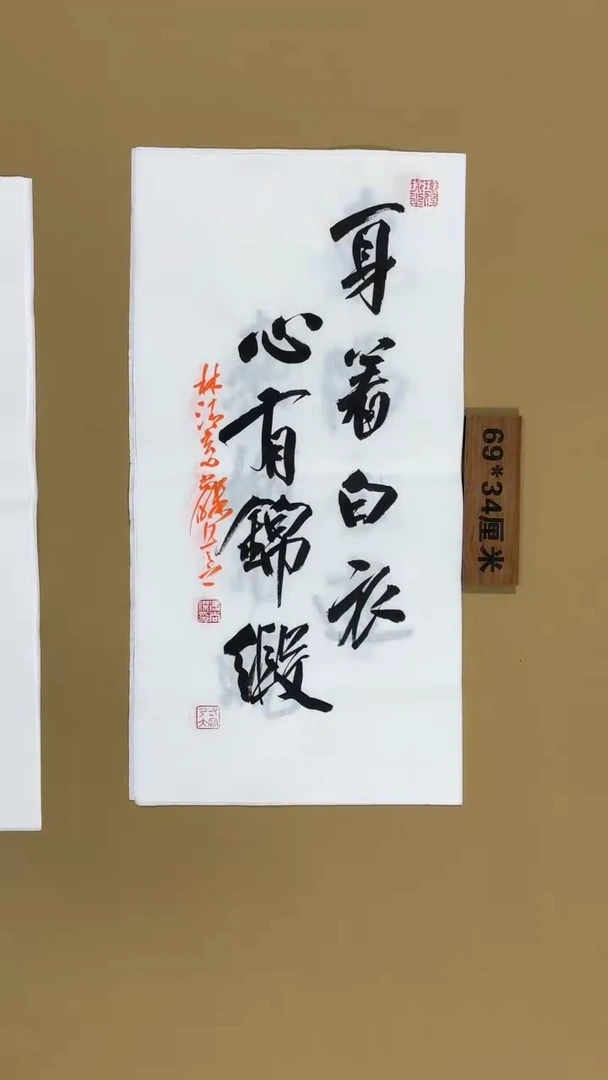 身着白衣
心有錦緞
林清玄
69*34厘米